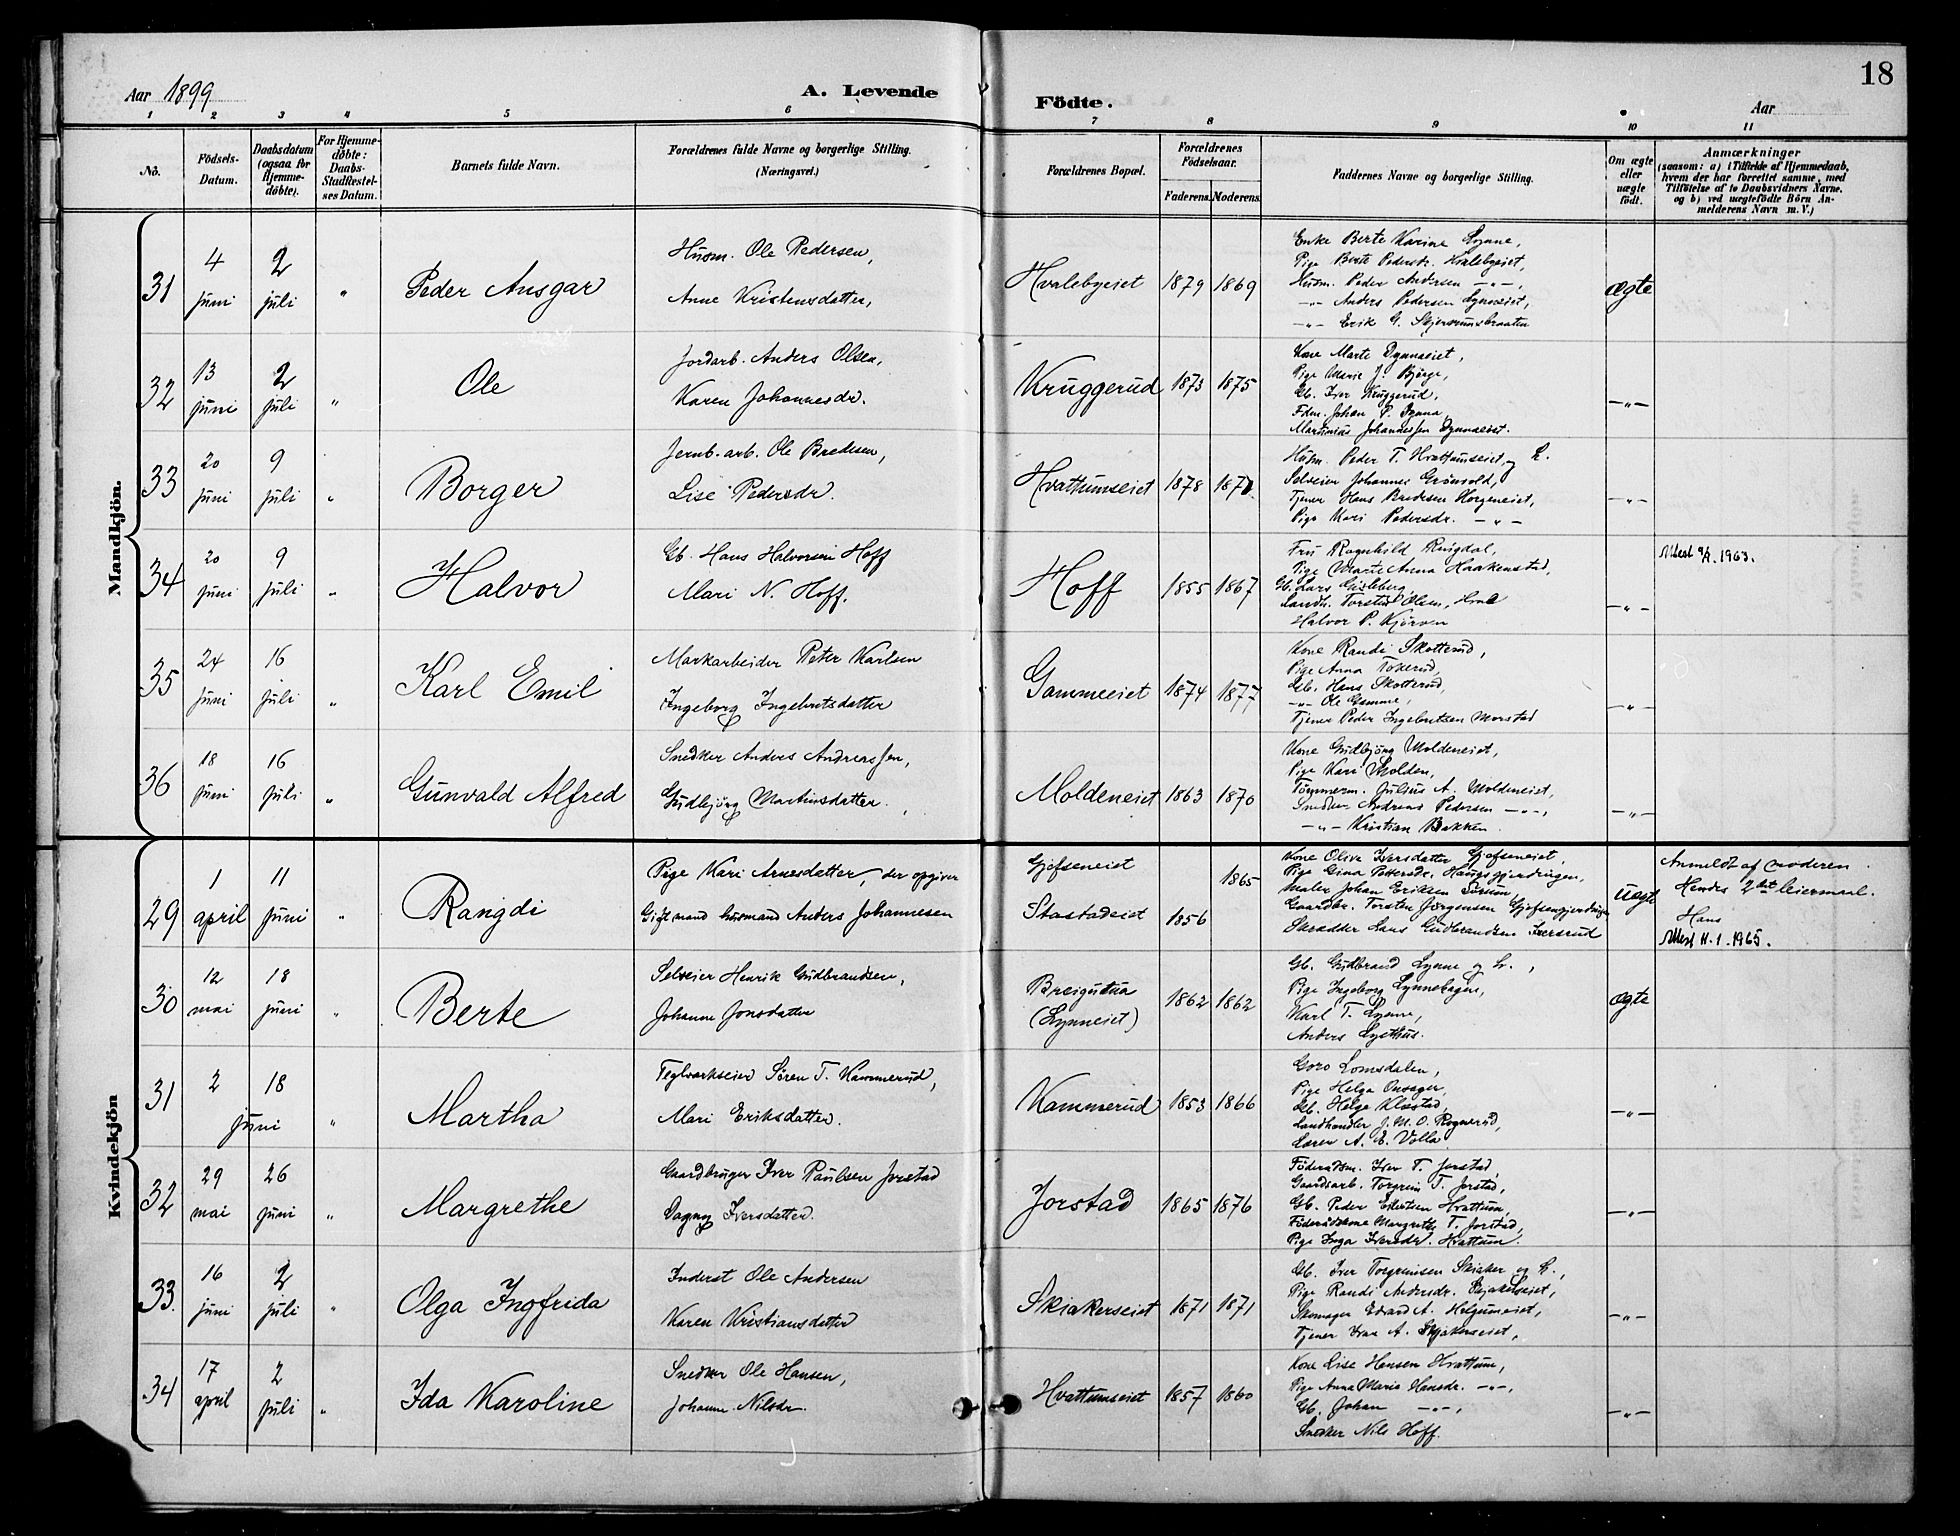 Aar 1899
A. Levende
Födte.
Aar
18
1 2 3 4 5 6 7 8 9 10 11
No.
Födsels-Datum.
Daabsdatum (ogsaa for Hjemmedöbte).
For Hjemmedøbte: Daabs-Stadfæstelses Datum.
Barnets fulde Navn.
Forældrenes fulde Navne og borgerlige Stilling. (Næringsvei.)
Forældrenes Bopæl.
Forældrenes Födselsaar.
Faderens. Moderens.
Faddernes Navne og borgerlige Stilling.
Om ægte eller uægte födt.
Anmærkninger
(saasom: a) i Tilfælde af Hjemmedaab, hvem der har forrettet samme, med Tilföielse af to Daabsvidners Navne, og b) ved uægtefödte Börn Anmelderens Navn m. V.)
Mandkjön.
31 4 juni 2 juli " Peder Ansgar
Husm. Ole Pedersen,
Anne Kristensdatter,
Hvalebyeiet 1879 1869
Enke Berte Karine Lynne,
Pige Berte Pedersdr. Hvalebyeiet,
Husm. Peder Andersen -"-,
-"- Anders Pedersen Lynneeiet,
-"- Erik G. Skjervumsbraaten
ægte
32 13 juni 2 juli " Ole
Jordarb. Anders Olsen,
Karen Johannesdr.
Kruggerud 1873 1875
Kone Marte Dynnaeiet,
Pige Marie J. Bjørge,
Gb. Iver Kruggerud,
Fdm. Johan P. Dynna,
Martinius Johannessen Dynnaeiet.
-"-
33 20 juni 9 juli " Borger
Jernb.arb. Ole Bredesen,
Lise Pedersdr.
Hvattumseiet 1878 1871
Husm. Peder T. Hvattumseiet, og H.
Selveier Johannes Grønvold,
Tjener Hans Bredesen Horgeneiet,
Pige Kari Pedersdr. -"-
-"-
34 20 juni 9 juli " Halvor
Gb. Hans Halvorsen Hoff
Mari N. Hoff.
Hoff 1855 1867
Fru Ragnhild Ringdal,
Pige Marte Anna Haakenstad,
Gb. Lars Gisleberg,
Landh. Torstein Olsen, Hval
Halvor P. Kjørven
-"-
Attest 1963.
35 24 juni 16 juli " Karl Emil
Markarbeider Peter Karlsen
Ingeborg Ingebretsdatter
Gammeeiet 1874 1877
Kone Randi Skotterud,
Pige Anna Tokerud,
Gb. Hans Skotterud,
-"- Ole Gamme,
Tjener Peder Ingebretsen Morstad
-"-
36 18 juni 16 juli " Gunvald Alfred
Snedker Anders Andreassen,
Gudbjørg Martinsdatter.
Moldeneiet 1863 1870
Kone Gudbjørg Moldeneiet,
Pige Kari Molden,
Tømmerm. Julius A. Moldeneiet,
Snedker Andreas Pedersen -"-,
-"- Kristian Bakken.
-"-
Kvindekjön
29 1 april 11 juni " Rangdi
Pige Kari Arnesdatter, der opgiver
Gift mand husmand Anders Johannesen
Gjefseneiet 1865
Stastadeiet 1856
Kone Olive Iversdatter Gjefseneiet,
Pige Gina Pettersdr. Haugsgjerdingen,
Maler Johan Eriksen Sørum,
Gaardbr. Torsten Jørgensen Gjefsengjerdingen
Skrædder Lars Gudbrandsen Iversrud
uægte
Anmeldt af moderen.
Hendes 2det leiermaal.
Hans
Attest 11.1.1965.
30 12 mai 18 juni " Berte
Selveier Henrik Gudbrandsen,
Johanne Jonsdatter
Breigutua (Lynneiet) 1862 1862
Gb. Gudbrand Lynne og H.,
Pige Ingeborg Lynnehagen,
Karl T. Lynne,
Anders Lysthus.
ægte
31 2 18 juni " Martha
Teglværkseier Søren T. Kammerud,
Mari Eriksdatter.
Kammerud 1853 1866
Goro Lomsdalen,
Pige Helga Onsager,
Gb. Helge Klæstad,
Landhandler J. M. O. Rognerud,
Lærer A. E. Volla
-"-
32 29 mai 26 juni " Margrethe
Gaardbruger Iver Paulsen Jorstad
Dagny Iversdatter.
Jorstad 1865 1876
Føderaadsm. Iver T. Jorstad,
Gaardsarb. Torgrim T. Jorstad,
Gb. Peder Eilertsen Hvattum,
Føderaadskone Margrethe T. Jorstad,
Pige Inga Iversdr. Hvattum.
-"-
33. 16 juni 2 juli " Olga Ingfrida
Inderst Ole Andersen
Karen Kristiansdatter
Skiakerseiet 1871 1871
Gb. Iver Torgrimsen Skiaker og H.,
Pige Randi Andersdr. Skjakerseiet,
Skomager Edvard A. Helgumeiet,
Tjener Ivar A. Skjakerseiet,
-"-
34 17 april 2 juli " Ida Karoline
Snedker Ole Hansen,
Johanne Nilsdr.
Hvattumseiet 1857 1860
Kone Lise Hansen Hvattum,
Pige Anna Marie Hansdr. -"-,
Gb. Johan -"-,
Snedker Nils Hoff.
-"-